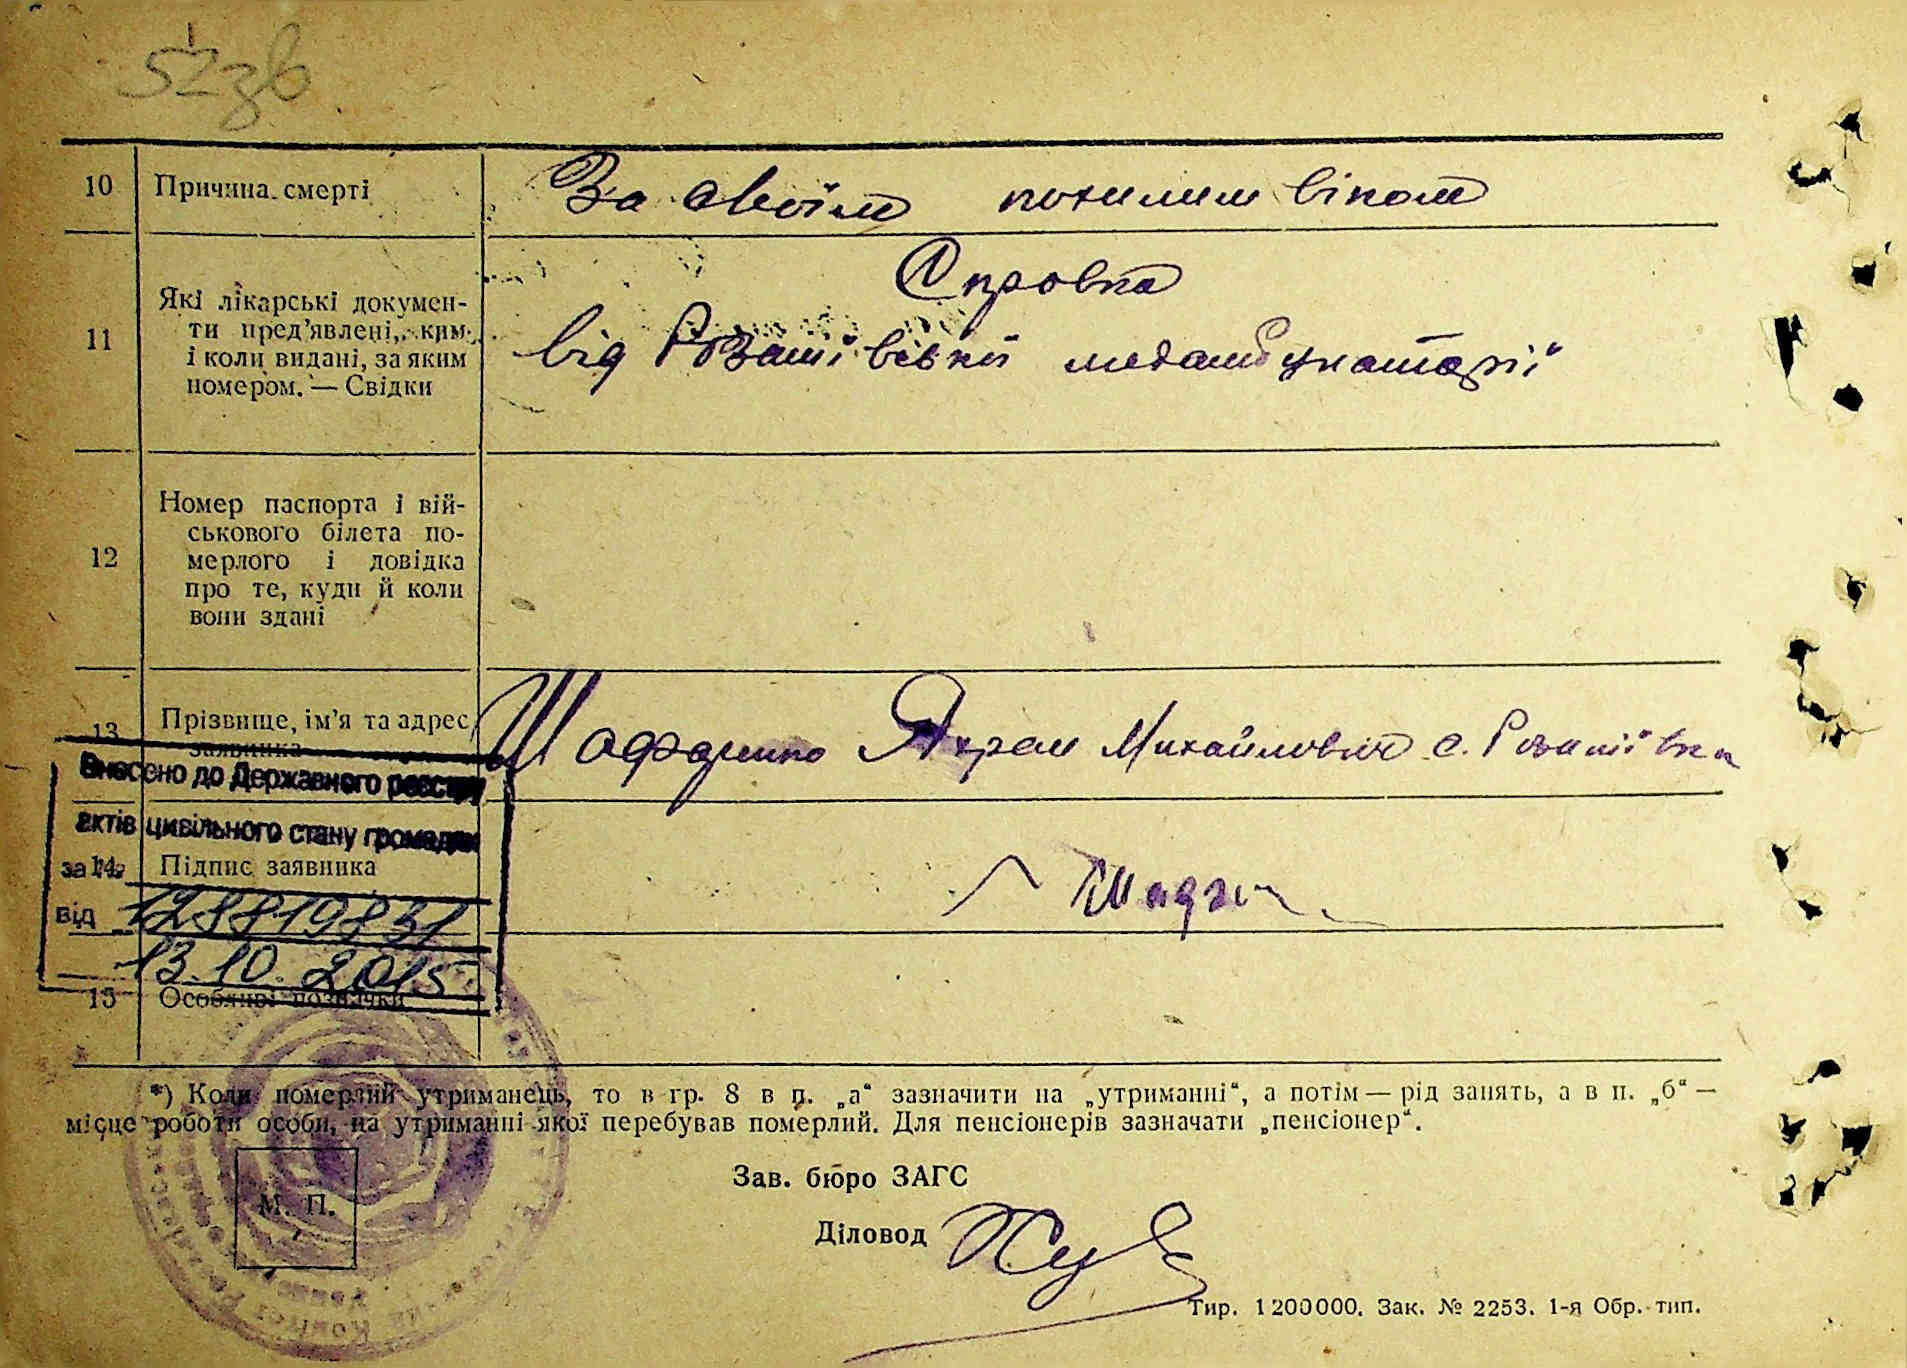 10 Причина смерті За своїм похилим віком
11 Які лікарські докумен-
ти пред’явлені, ким
і коли видані, за яким
номером. — Свідки
Справка
від Розишівівкої медамбулаторії
12 Номер паспорта і вій-
ськового білета по-
мерлого і довідка
про те, куди й коли
вони здані
13 Прізвище, ім’я та адрес
заявника
Михайлович с.
Внесено до Державного реєстру
актів цивільного стану громадян
за №
14 Підпис заявника
від 128819831
13.10.2015
15 Особливі позначки
*) Коли померлий утриманець, то в гр. 8 в п. „а“ зазначити на „утриманні“, а потім — рід занять, а в п. „б“ —
місце роботи особи, на утриманні якої перебував померлий. Для пенсіонерів зазначати „пенсіонер“.
Зав. бюро ЗАГС
М. П.
Діловод
Тир. 1200000. Зак. № 2253. 1-я Обр. тип.